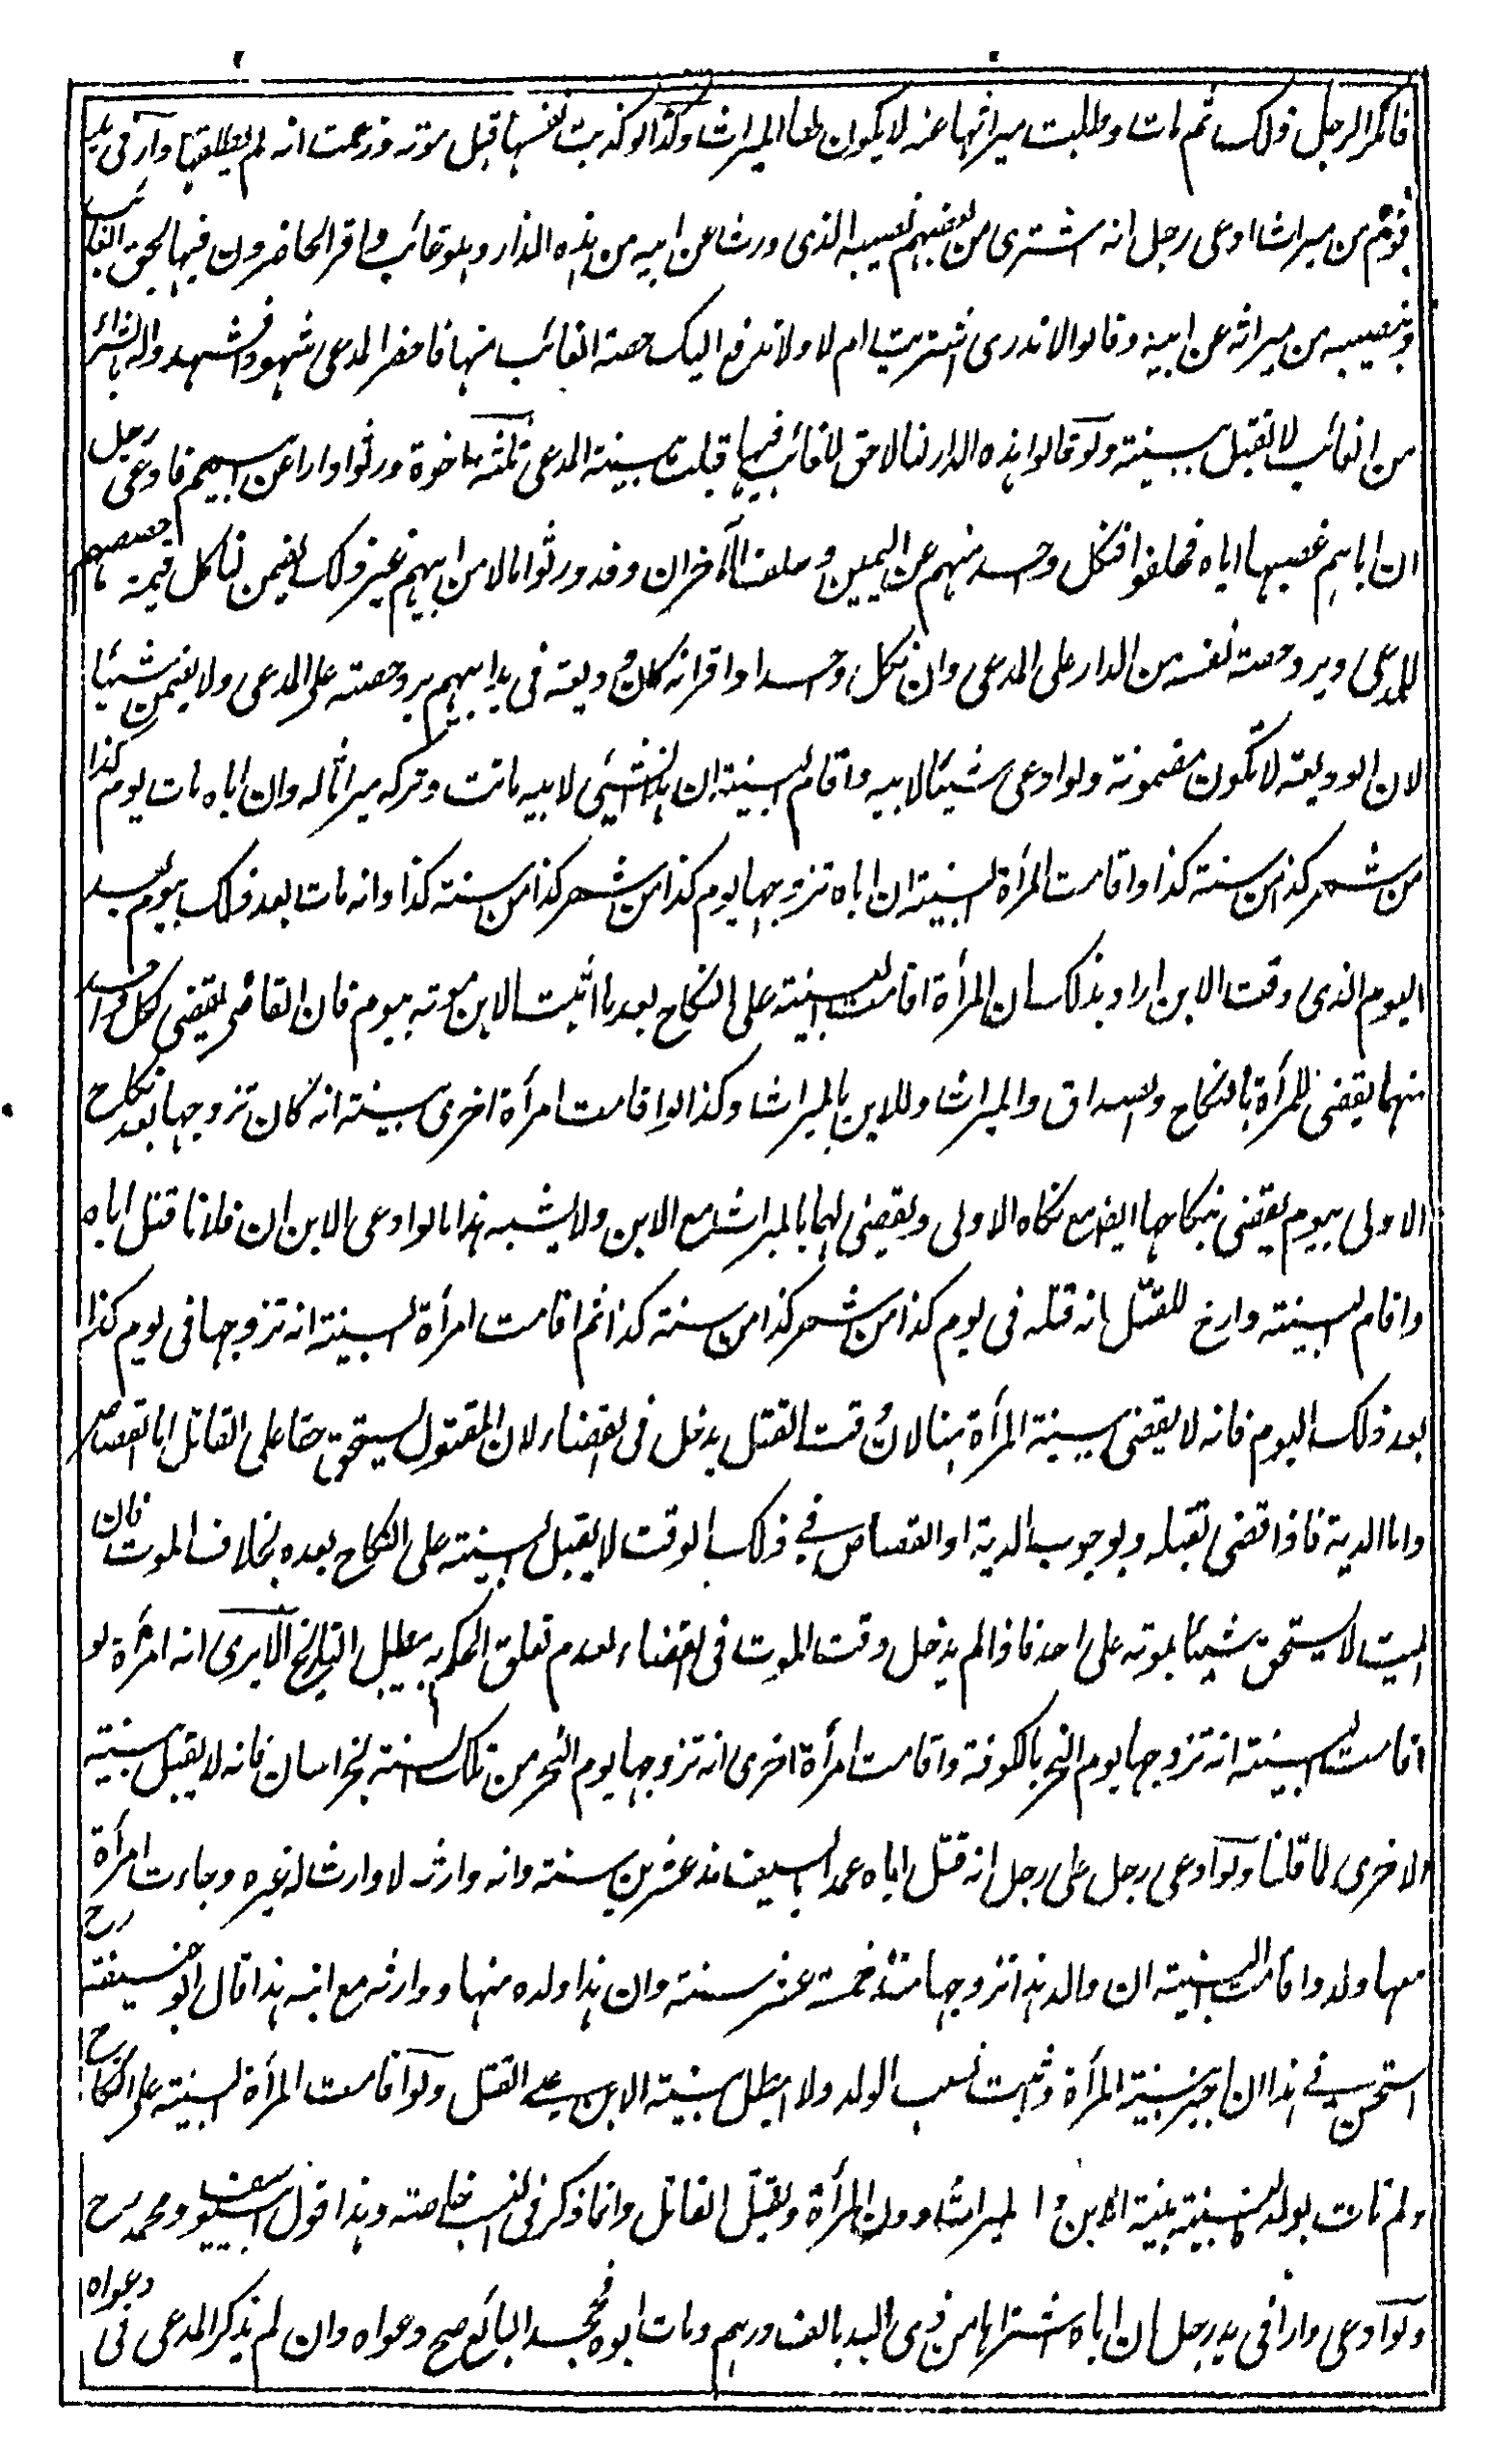 فانكر الرجل ذلك ثم مات وطلبت ميراثها عنه لا يكون لها الميراث وكذا لو كذبت نفسها قبل موته وزعمت انه لم يطلقها دار في يد
قوم من ميراث ادعى رجل انه اشترى من بعضهم نصيبه الذى ورث عن ابيه من هذه الدار وهو غائب واقر الحاضرون فيها بحق الغائب
ونصيبه من ميراثه عن ابيه وقالوا لا ندرى اشتريت ام لا ولا ندفع اليك حصة الغائب منها فاحضر المدعى شهودا فشهدوا له بالشراء
من الغائب لا تقبل بينته ولو قالوا هذه الدار لنا لا حق للغائب فيها قبلت بينة المدعى ثلثة اخوة ورثوا دارا عن ابيهم فادعى رجل
ان اباهم غصبها اياه فحلفوا فنكل واحد منهم عن اليمين وحلف الآخران وقد ورثوا مالا من ابيهم غير ذلك يضمن الناكل قيمة حصصهم
للمدعى ويرد حصة نفسه من الدار على المدعى وان نكل واحد او اقر انه كان وديعة في يد ابيهم يرد حصته على المدعى ولا يضمن شيئا
لان الوديعة لا تكون مضمونة ولو ادعى شيئا لابيه واقام البينة ان هذا الشيئ لابيه مات وتركه ميراثا له وان اباه مات يوم كذا
من شهر كذا من سنة كذا واقامت المرأة البينة ان اباه تزوجها يوم كذا من شهر كذا من سنة كذا وانه مات بعد ذلك بيوم بعد
اليوم الذى وقت الابن اراد بذلك ان المرأة اقامت البينة على النكاح بعد ما اثبت الابن موته بيوم فان القاضى يقضى لكل واحد
منهما يقضى للمرأة بالنكاح والصداق والميراث وللابن بالميراث وكذا لو اقامت امرأة اخرى بينة انه كان تزوجها بعد نكاح
الاولى بيوم يقضى بنكاحها ايضا مع نكاه الاولى ويقضى لهما بالميراث مع الابن ولا يشبه هذا ما لو ادعى الابن ان فلانا قتل اباه
واقام البينة وارخ للقتل انه قتله في يوم كذا من شهر كذا من سنة كذا ثم اقامت امرأة البينة انه تزوجها في يوم كذا
بعد ذلك اليوم فانه لا يقضى ببينة المرأة هنا لان وقت القتل يدخل في القضاء لان المقتول يستحق حقا على القاتل اما القصاص
واما الدية فاذا قضى بقتله وبوجوب الدية او القصاص في ذلك الوقت لا يقبل البينة على النكاح بعده بخلاف الموت فان
الميت لا يستحق شيئا بموته على احد فاذا لم يدخل وقت الموت في القضاء لعدم تعلق الحكم به يبطل التاريخ الا يرى انه امرأة لو
اقامت البينة انه تزوجها يوم النحر بالكوفة واقامت امرأة اخرى انه تزوجها يوم النحر من تلك السنة بخراسان فانه لا يقبل بينة
الاخرى لما قلنا ولو ادعى رجل على رجل انه قتل اباه عمدا بالسيف منذ عشرين سنة وانه وارثه لا وارث له غيره وجاءت امرأة
معها ولد واقامت البينة ان والد هذا تزوجها منذ خمسة عشر سنة وان هذا ولده منها ووارثه مع ابنه هذا قال ابو حنيفة رح
استحسن في هذا ان اجيز بينة المرأة واثبت نسب الولد ولا ابطل بينة الابن على القتل ولو اقامت المرأة البينة على النكاح
ولم تات بولد فالبينة بينة الابن و الميراث دون المرأة ويقتل القاتل وانما ذكر في النسب خاصة وهذا قول ابي يوسف ومحمد رح
ولو ادعى دارا في يد رجل ان اباه اشتراها من ذى اليد بالف درهم ومات ابوه فجحد البائع صح دعواه وان لم يذكر المدعى في دعواه